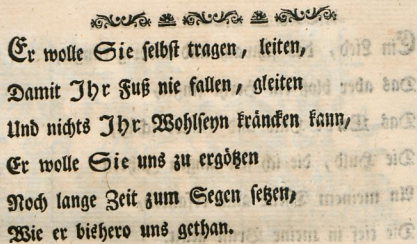 Er wolle Sie selbst tragen, leiten,
Damit Ihr Fuß nie fallen, gleiten
Und nichts Ihr Wohlseyn kräncken kann,
Er wolle Sie uns zu ergötzen
Noch lange Zeit zum Segen setzen,
Wie er bishero uns gethan.